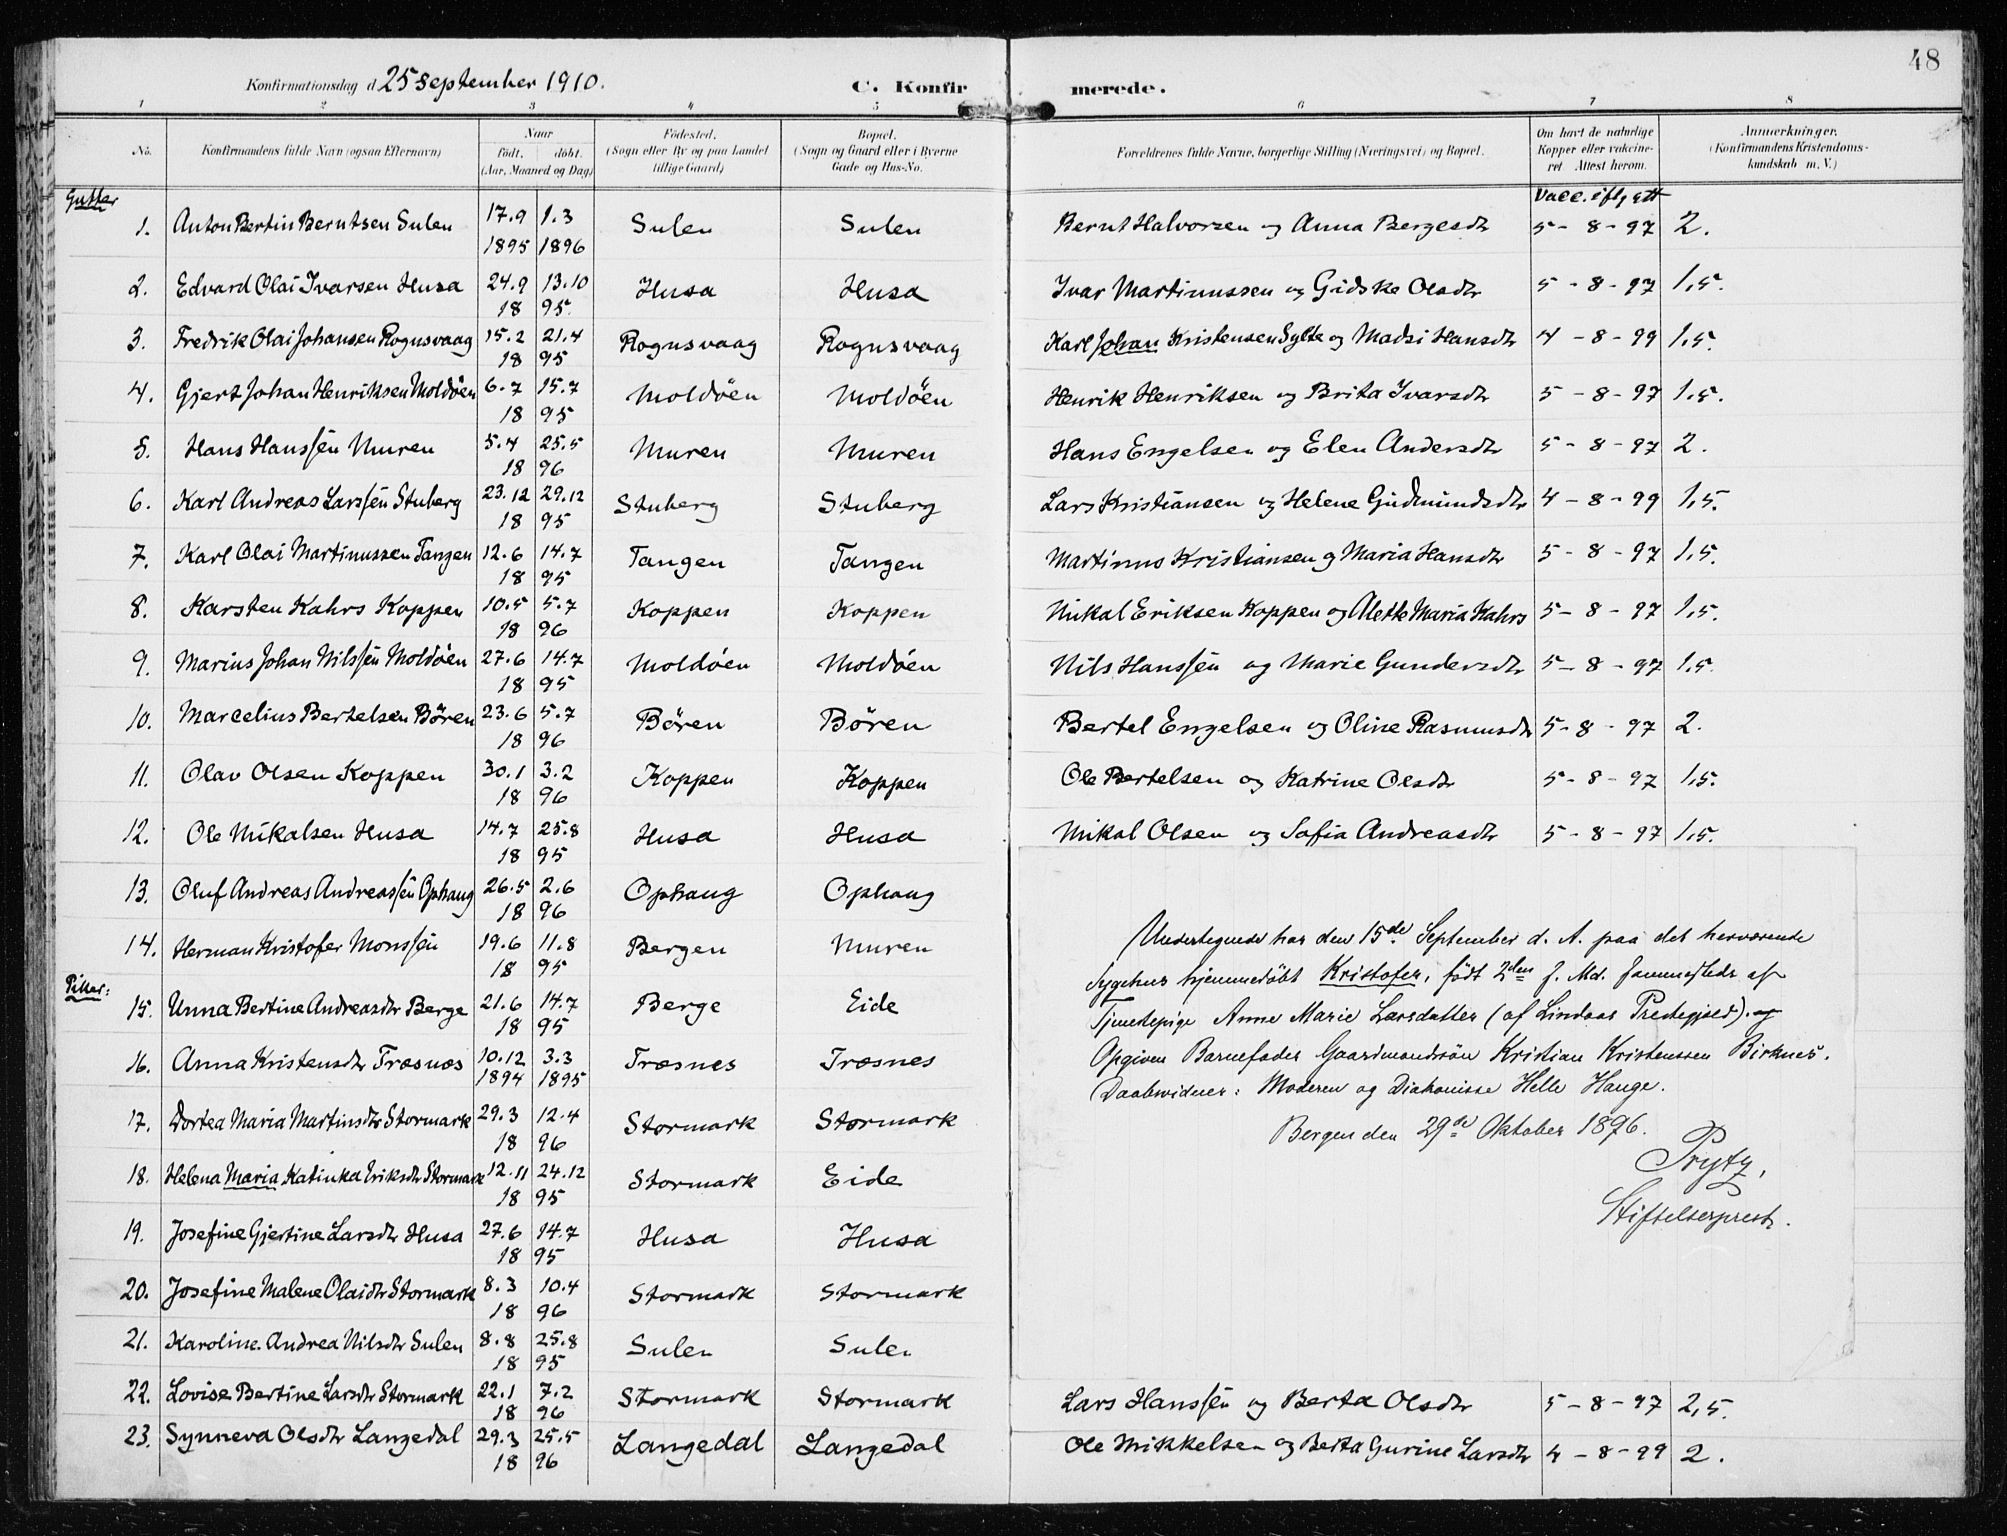 48
Konfirmationsdag d. 25 September 1910.
C. Konfirmerede.
1 2 3 4 5 6 7 8
No.
Konfirmandens fulde Navn (ogsaa Efternavn)
Naar
født. døbt.
(Aar, Maaned og Dag)
Fødested.
(Sogn eller By og paa Landet
tillige Gaard)
Bopæl.
(Sogn og Gaard eller i Byerne
Gade og Hus-No.
Forældrenes fulde Navne, borgerlige Stilling (Næringsvei) og Bopæl.
Om havt de naturlige
Kopper eller vakcine-
ret Attest herom.
Anmærkninger.
(Konfirmandens Kristendoms-
kundskab m. V.)
Gutter
Vacc. iflg att
1. Anton Bertin Berntsen Sulen 17.9 1895 1.3 1896 Sulen Sulen Bernt Halvorsen og Anna Bergesdtr 5-8-97 2.
2. Edvard Olai Ivarsen Husa 24.9 13.10 18 95 Husa Husa Ivar Martinussen og Gidske Olsdtr 5-8-97 1,5.
3. Fredrik Olai Johansen Rognsvaag 15.2 21.4 18 95 Rognsvaag Rognsvaag Karl Johan Kristensen Sylte og Madsi Hansdtr 4-8-99 1,5.
4. Gjert Johan Henriksen Moldöen 6.7 15.7 18 95 Moldöen Moldöen Henrik Henriksen og Brita Ivarsdtr 5-8-97 1,5.
5. Hans Hanssen Muren 5.4 25.5 18 96 Muren Muren Hans Engelsen og Elen Andersdtr 5-8-97 2.
6. Karl Andreas Larssen Stuberg 23.12 29.12 18 95 Stuberg Stuberg Lars Kristiansen og Helene Gudmundsdtr 4-8-99 1,5.
7. Karl Olai Martinussen Tangen 12.6 14.7 18 95 Tangen Tangen Martinus Kristiansen og Maria Hansdtr 5-8-97 1,5.
8. Karsten Kahrs Koppen 10.5 5.7 18 96 Koppen Koppen Mikal Eriksen Koppen og Alette Maria Kahrs 5-8-97 1,5.
9. Marius Johan Nilssen Moldöen 27.6 14.7 18 95 Moldöen Moldöen Nils Hanssen og Marie Gundersdtr 5-8-97 1,5.
10. Marcelius Bertelsen Bören 23.6 5.7 18 96 Bören Bören Bertel Engelsen og Oline Rasmusdtr 5-8-97 2.
11. Olav Olsen Koppen 30.1 3.2 18 96 Koppen Koppen Ole Bertelsen og Katrine Olsdtr 5-8-97 1,5.
12. Ole Mikalsen Husa 14.7 25.8 18 95 Husa Husa Mikal Olsen og Sofia Andreasdtr 5-8-97 1,5.
13. Oluf Andreas Andreassen Ophaug 26.5 2.6 18 96 Ophaug Ophaug
14. Herman Kristofer Monssen 19.6 11.8 18 95 Bergen Muren
Piker:
15. Anna Bertine Andreasdtr Berge 21.6 14.7 18 95 Berge Eide
16. Anna Kristensdtr Træsnes 10.12 1894 3.3 1895 Træsnes Træsnes
17. Dortea Maria Martinsdtr Stormark 29.3 12.4 18 96 Stormark Stormark
18. Helena Maria Katinka Eriksdtr Stormark 12.11 24.12 18 95 Stormark Eide
19. Josefine Gjertine Larsdtr Husa 27.6 14.7 18 95 Husa Husa
20. Josefine Malene Olaidtr Stormark 8.3 10.4 18 96 Stormark Stormark
21. Karoline Andrea Nilsdtr Sulen 8.8 25.8 18 95 Sulen Sulen
22. Lovise Bertine Larsdtr Stormark 22.1 7.2 18 96 Stormark Stormark Lars Hanssen og Berta Olsdtr 5-8-97 2,5.
23. Synneva Olsdtr Langedal 29.3 25.5 18 96 Langedal Langedal Ole Mikkelsen og Berta Gurine Larsdtr 4-8-99 2.
Undertegnede har den 15de September d. A. paa det herværende
Sygehus hjemmedöbt Kristofer, født 2den s. Md. sammesteds af
Tjenestepige Anne Marie Larsdatter (af Lindaas Prestegjæld). og
Opgiven Barnefader Gaardmandssön Kristian Kristenssen Birknes.
Daabsvidner: Moderen og Diakonisse Helle Hauge.
Bergen den 29de Oktober 1896.
Prytz,
Stiftelsesprest.